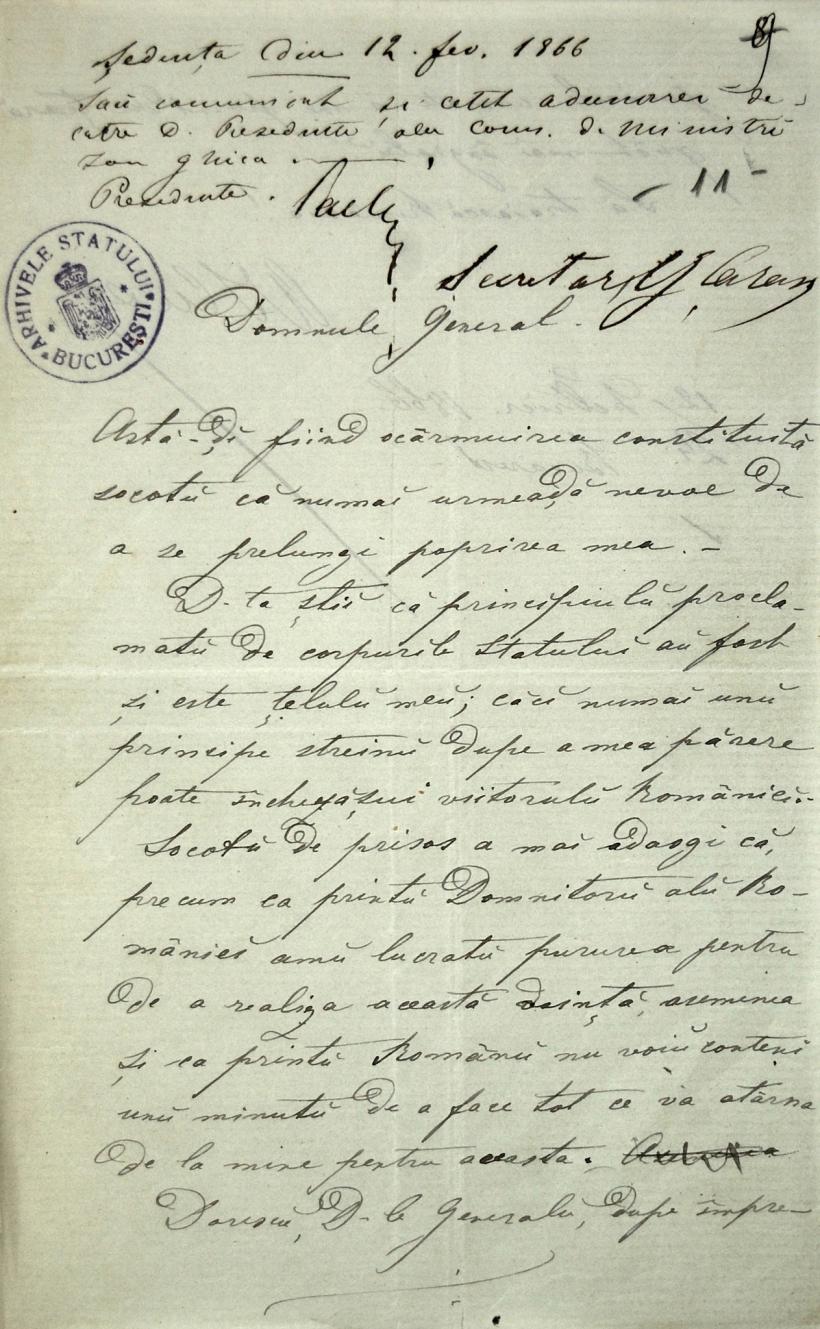 Ședința din 12. fev. 1866
Sau comunicat și cetit adunărei de
catre D. Presedinte alu Cons. de ministri
Ion Ghica.
Presedinte.
- 11 -
Secretar,
ARHIVELE STATULUI
BUCUREȘTI
Domnule General.
Astă-ḑi fiind ocârmuirea constituită
socotŭ că numai urmeaḑă nevoe de
a se prelungi poprirea mea. -
D-ta știi că principiulŭ procla-
matŭ de corpurile Statului aŭ fost
și este țelulŭ meŭ; căci numai unŭ
principe streinŭ dupe a mea părere
poate închezășui viitorulŭ Româniĕi.-
Socotŭ de prisos a mai adaogi că,
precum ca printŭ Domnitorŭ alŭ Ro-
mâniĕi amŭ lucratŭ pururea pentru
de a realiza aceastâ dointă, asemenea
și ca printŭ Românŭ nu voiŭ conteni
unŭ minutŭ de a face tot ce va atârna
de la mine pentru aceasta.
Dorescŭ, D-le Generalŭ, dupe impre-